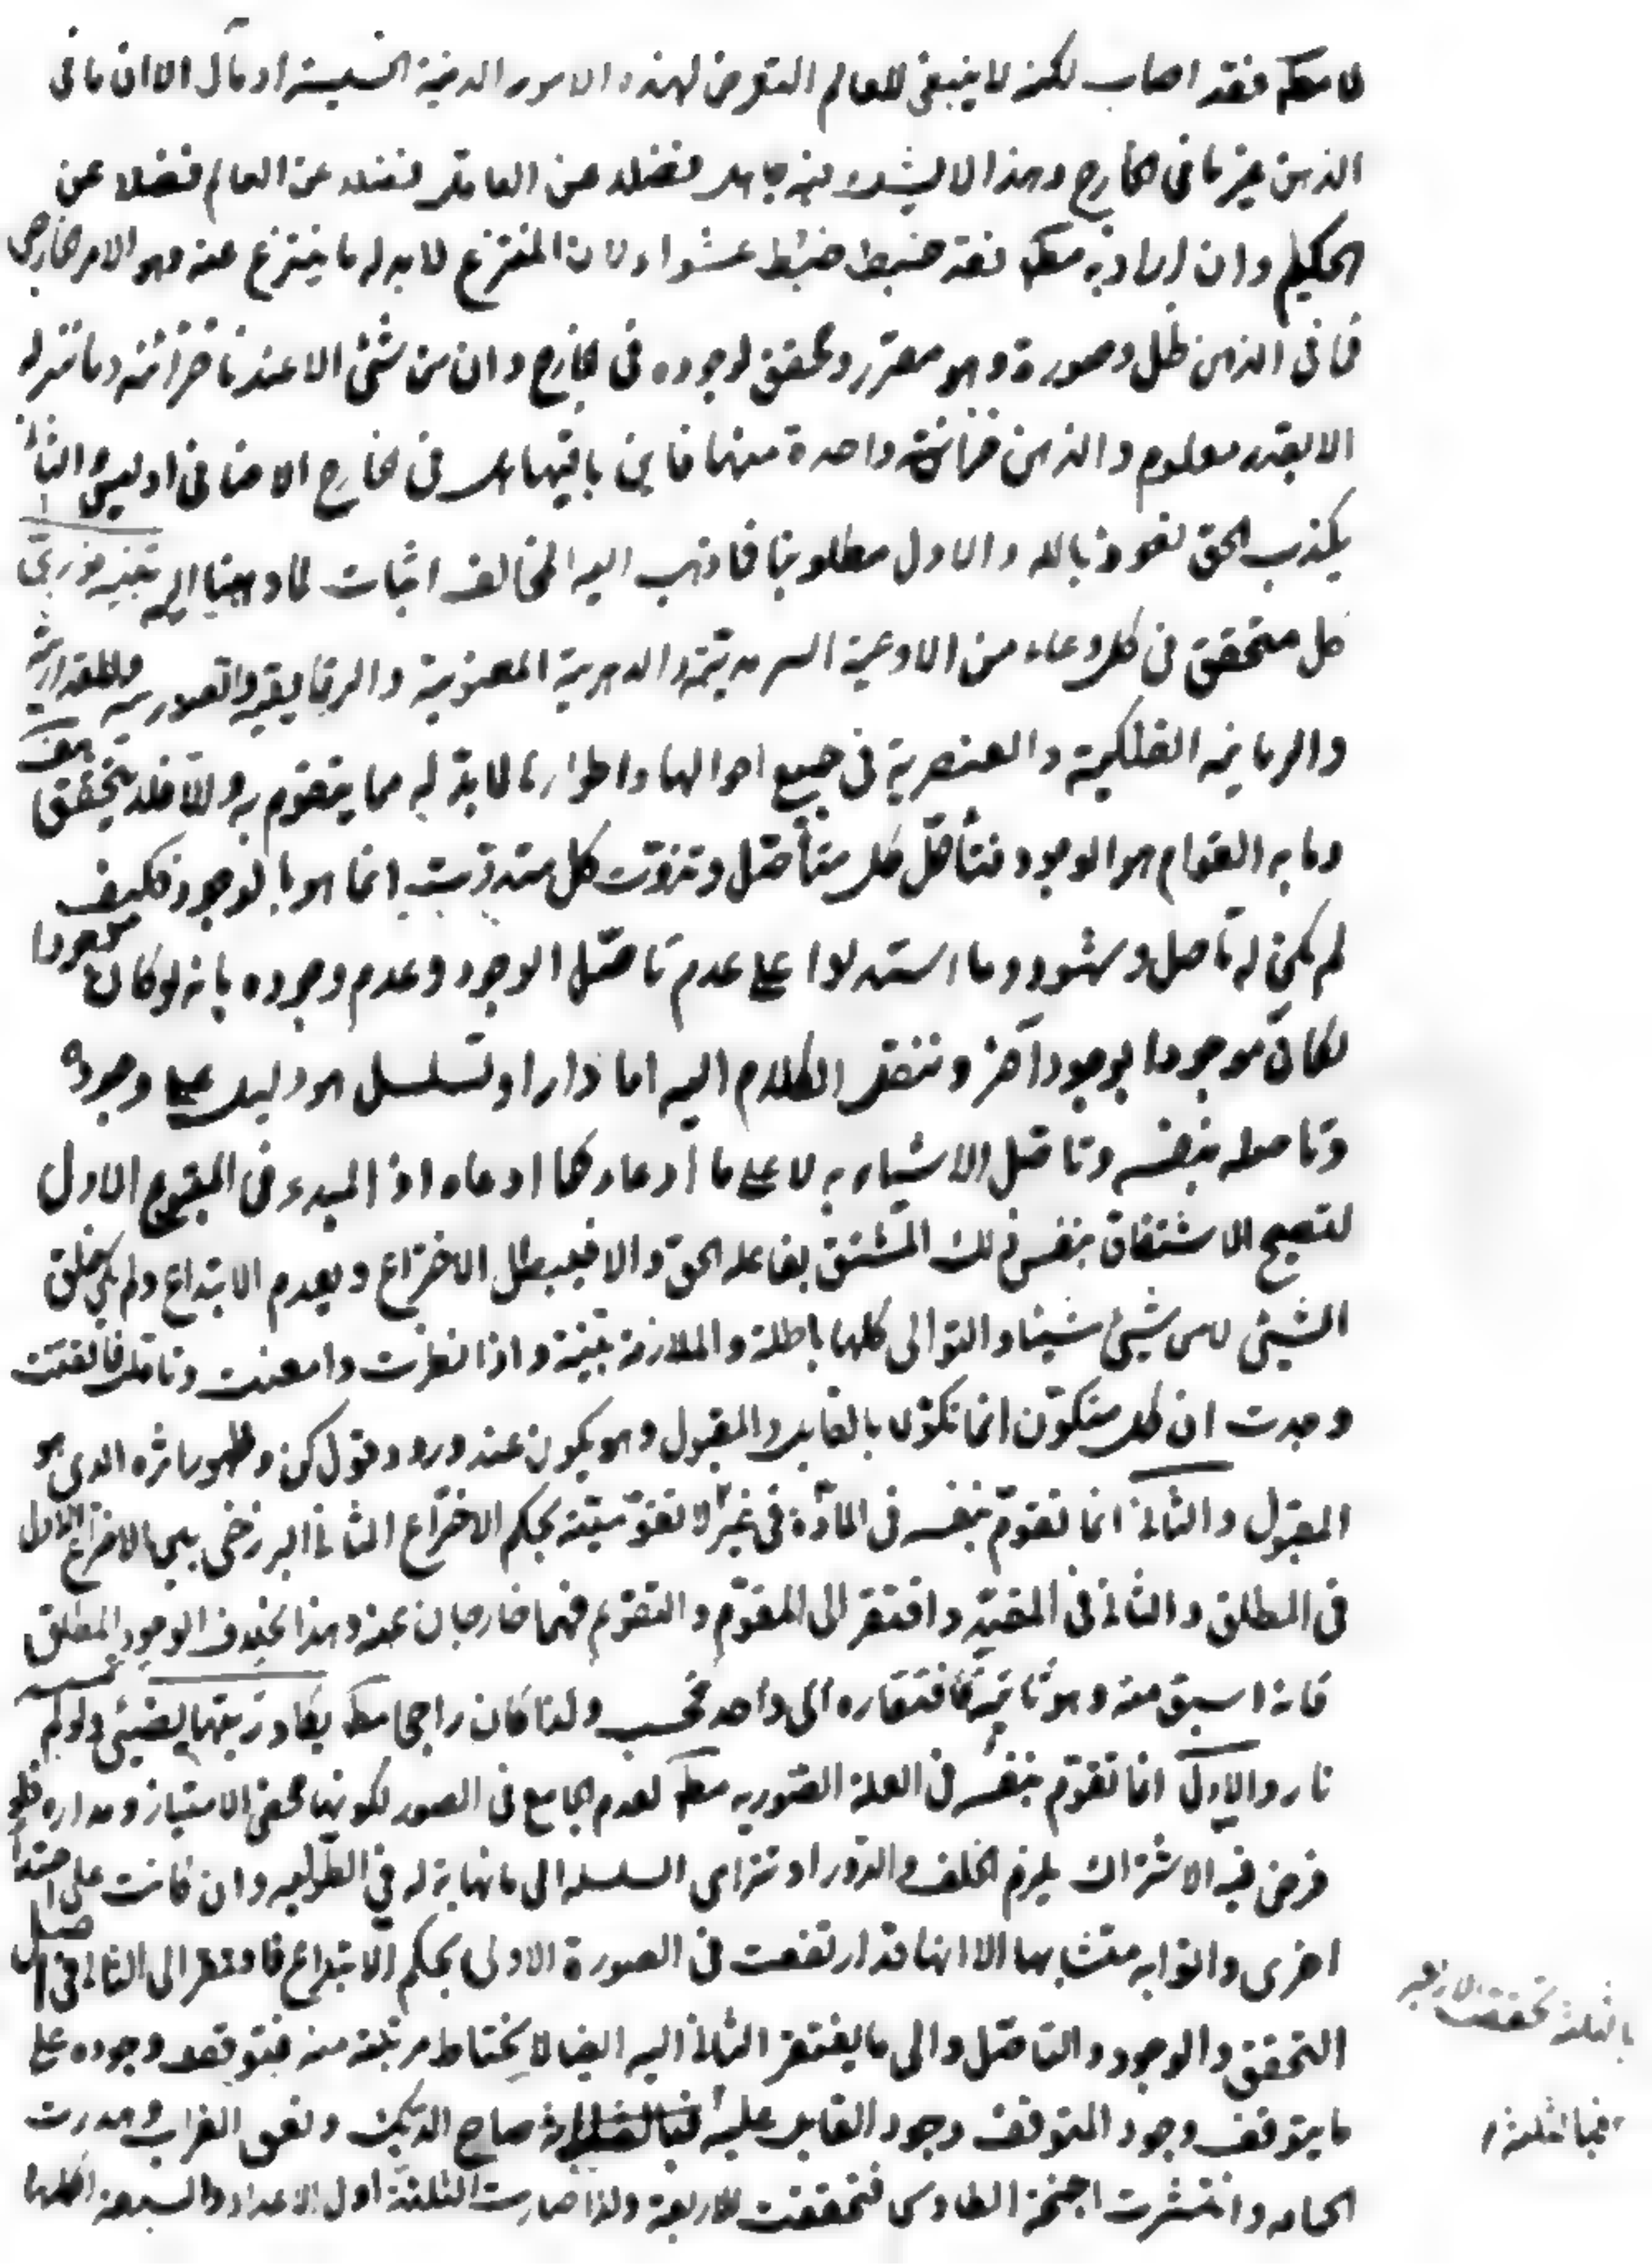 لا مطلقا فقد اصاب لكنه لا ينبغي للعالم التعرض لهذه الامور الدنية الخسيسة او مآل الا ان ما في
الذهن غير ما في الخارج وهذا لا يشك فيه جاهل فضلا عن العاقل فضلا عن العالم فضلا عن
الحكيم وان اراد به مطلقا فقد خبط خبط عشواء لان المنتزع لا بد له ما ينتزع عنه وهو الامر الخارجي
فما في الذهن ظل وصورة وهو مقرر ومحقق لوجوده في الخارج وان من شئ الا عندنا خزائنه وما ننزله
الا بقدر معلوم والذهن خزانة واحدة منها فاين باقيها هل في الخارج الاضافي او ليس والثاني
يكذب الحق نعوذ بالله والاول مطلوبنا فما ذهب اليه المخالف اثبات لما ذهبنا اليه تنبيه نوري
كل متحقق في كل وعاء من الاوعية السرمدية والدهرية المعنوية والرقايقية والصورية والمقدارية
والزمانية الفلكية والعنصرية في جميع احوالها واطوارها لا بد له مما يتقوم به والا فلا يتحقق
وما به القوام هو الوجود فتأصل كل متأصل وتذوت كل متذوت انما هو بالوجود فكيف
لم يكن له تأصل وثبوت وما استدلوا على عدم تأصل الوجود وعدم وجوده بانه لو كان موجودا
لكان موجودا بوجود آخر وننقل الكلام اليه اما دار او تسلسل هو دليل على وجوده
وتأصله بنفسه وتأصل الاشياء به لا على ما ادعاه كما ادعاه اذ المبدء في المفهوم الاول
لتصحيح الاشتقاق بنفس ذلك المشتق بفاعله الحق والا فيبطل الاختراع ويعدم الابتداع ولم يكن خلق
الشئ لا من شئ شيئا والتوالي كلها باطلة والملازمة بينة واذا نظرت وامعنت وتأملت فالتفتت
وجدت ان كل متكون انما تكون بالقابل والمقبول وهو يكون عند ورود قول كن وظهور اثره الذي هو
المقبول والثاني انما تقوم بنفسه في المادة في غير لا تقومية بحكم الاختراع الثاني البرزخي بين الاختراع الاول
في المطلق والثاني في المقيد وافتقر الى المقوم والتقوم فهما خارجان عنه وهذا بخلاف الوجود المطلق
فانه اسبق منه وهو تأثيره فافتقاره الى واحد فحسب ولذا كان راجحا مطلقا يكاد زيتها يضيئ ولو لم تمسسه
نار والاول انما تقوم بنفسه في العلة الصورية مطلقا لعدم الجامع في الصور لكونها محض الامتياز ومداره فلو
فرض فيه الاشتراك يلزم الخلف والدور او تترامى السلسلة الى ما نهاية له في الطولية وان كانت على حقيقة
اخرى واتوا به متشابها الا انها قد ارتفعت في الصورة الاولى بحكم الابتداع فافتقر الى الثاني في اصل
التحقق والوجود والتأصل والى ما يفتقر الثاني اليه ايضا لانحطاط مرتبته منه فتوقف وجوده على
ما يتوقف وجود المتوقف وجود القابل عليه صاح الديك ونعق الغراب وهدرت
الحمامة وانتشرت اجنحة الطاوس فتحققت الاربعة ولذا صارت الثلثة اول الاعداد والسبعة اكملها
بالثلثة تحققت الاربعة
فبالثلثة